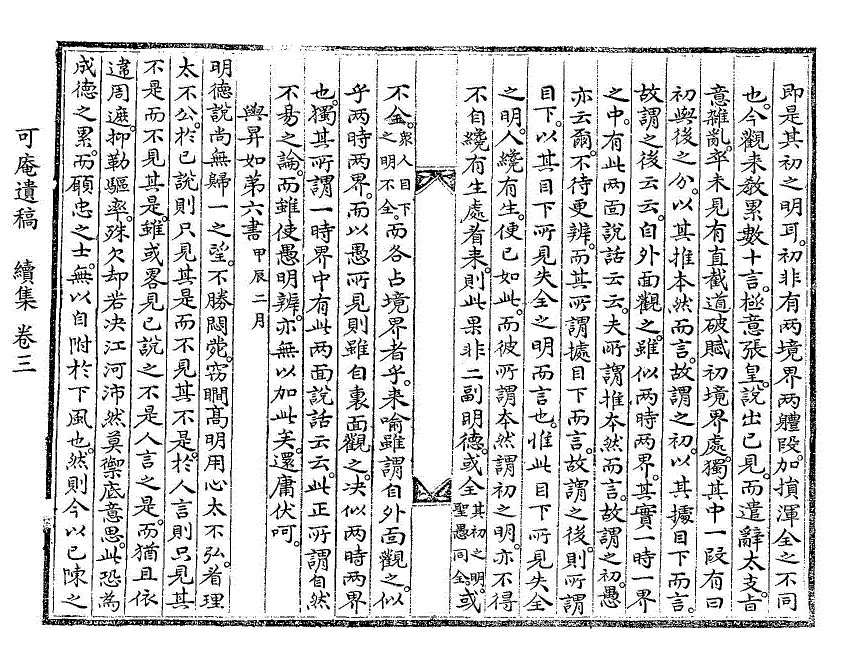 即是其初之明耳。初非有两境界两軆段。加損渾全之不同
也。今觀来敎累數十言。極意張皇。說出己見。而遣辭太支。旨
意雜亂。率未見有直截道破賦初境界處。獨其中一段有曰
初與後之分。以其推本然而言。故謂之初。以其據目下而言。
故謂之後云云。自外面觀之。雖似两時两界。其實一時一界
之中。有此两面說話云云。夫所謂推本然而言。故謂之初。愚
亦云爾。不待更辨。而其所謂據目下而言。故謂之後。則所謂
目下。以其目下所見失全之明而言也。惟此目下所見失全
之明。人纔有生。便已如此。而彼所謂本然謂初之明。亦不得
不自纔有生處看来。則此果非二副明德。或全其初之明。聖愚同全。或
不全。衆人目下之明不全。而各占境界者乎。来喩雖謂自外面觀之。似
乎两時两界。而以愚所見則雖自裏面觀之。决似两時两界
也。獨其所謂一時界中有此两面說話云云。此正所謂自然
不易之論。而雖使愚明辨。亦無以加此矣。還庸伏呵。
與昇如第六書甲辰二月
明德說尙無歸一之望。不勝悶菀。窃瞷高明用心太不弘。看理
太不公。於己說則只見其是而不見其不是。於人言則只見其
不是而不見其是。雖或畧見己說之不是人言之是。而猶且依
違周遮。抑勒驅率。殊欠却若决江河沛然莫禦底意思。此恐爲
成德之累。而願忠之士。無以自附於下風也。然則今以已陳之
可庵遺稿 續集 卷三